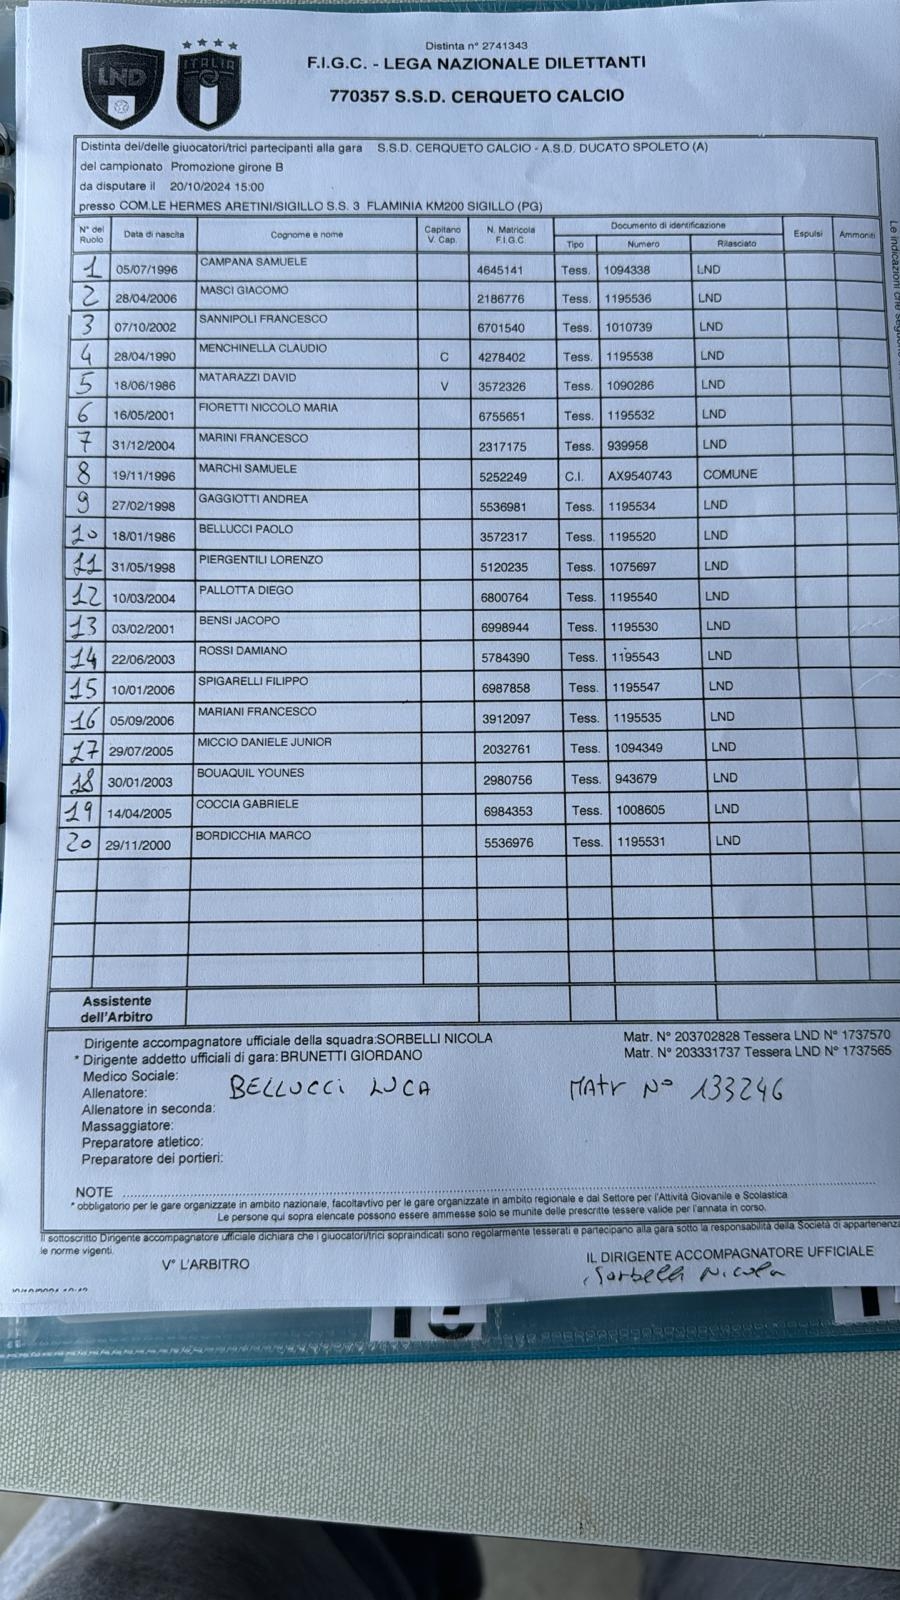 LND
ITALIA
Distinta n° 2741343
F.I.G.C. - LEGA NAZIONALE DILETTANTI
770357 S.S.D. CERQUETO CALCIO
Distinta dei/delle giuocatori/trici partecipanti alla gara S.S.D. CERQUETO CALCIO - A.S.D. DUCATO SPOLETO (A)
del campionato Promozione girone B
da disputare il 20/10/2024 15:00
presso COM.LE HERMES ARETINI/SIGILLO S.S. 3 FLAMINIA KM200 SIGILLO (PG)
N° del Ruolo Data di nascita Cognome e nome Capitano V. Cap. N. Matricola F.I.G.C. Documento di identificazione Espulsi Ammoniti
Tipo Numero Rilasciato
1 05/07/1996 CAMPANA SAMUELE 4645141 Tess. 1094338 LND
2 28/04/2006 MASCI GIACOMO 2186776 Tess. 1195536 LND
3 07/10/2002 SANNIPOLI FRANCESCO 6701540 Tess. 1010739 LND
4 28/04/1990 MENCHINELLA CLAUDIO C 4278402 Tess. 1195538 LND
5 18/06/1986 MATARAZZI DAVID V 3572326 Tess. 1090286 LND
6 16/05/2001 FIORETTI NICCOLO MARIA 6755651 Tess. 1195532 LND
7 31/12/2004 MARINI FRANCESCO 2317175 Tess. 939958 LND
8 19/11/1996 MARCHI SAMUELE 5252249 C.I. AX9540743 COMUNE
9 27/02/1998 GAGGIOTTI ANDREA 5536981 Tess. 1195534 LND
10 18/01/1986 BELLUCCI PAOLO 3572317 Tess. 1195520 LND
11 31/05/1998 PIERGENTILI LORENZO 5120235 Tess. 1075697 LND
12 10/03/2004 PALLOTTA DIEGO 6800764 Tess. 1195540 LND
13 03/02/2001 BENSI JACOPO 6998944 Tess. 1195530 LND
14 22/06/2003 ROSSI DAMIANO 5784390 Tess. 1195543 LND
15 10/01/2006 SPIGARELLI FILIPPO 6987858 Tess. 1195547 LND
16 05/09/2006 MARIANI FRANCESCO 3912097 Tess. 1195535 LND
17 29/07/2005 MICCIO DANIELE JUNIOR 2032761 Tess. 1094349 LND
18 30/01/2003 BOUAQUIL YOUNES 2980756 Tess. 943679 LND
19 14/04/2005 COCCIA GABRIELE 6984353 Tess. 1008605 LND
20 29/11/2000 BORDICCHIA MARCO 5536976 Tess. 1195531 LND
Assistente dell'Arbitro
Dirigente accompagnatore ufficiale della squadra:SORBELLI NICOLA Matr. N° 203702828 Tessera LND N° 1737570
* Dirigente addetto ufficiali di gara: BRUNETTI GIORDANO Matr. N° 203331737 Tessera LND N° 1737565
Medico Sociale:
Allenatore: BELLUCCI LUCA MAtr N° 133246
Allenatore in seconda:
Massaggiatore:
Preparatore atletico:
Preparatore dei portieri:
NOTE
* obbligatorio per le gare organizzate in ambito nazionale, facoltavtivo per le gare organizzate in ambito regionale e dal Settore per l'Attività Giovanile e Scolastica
Le persone qui sopra elencate possono essere ammesse solo se munite delle prescritte tessere valide per l'annata in corso.
Il sottoscritto Dirigente accompagnatore ufficiale dichiara che i giuocatori/trici sopraindicati sono regolarmente tesserati e partecipano alla gara sotto la responsabilità della Società di appartenenza
le norme vigenti.
V° L'ARBITRO IL DIRIGENTE ACCOMPAGNATORE UFFICIALE
Sorbelli Nicola
Le indicazioni che